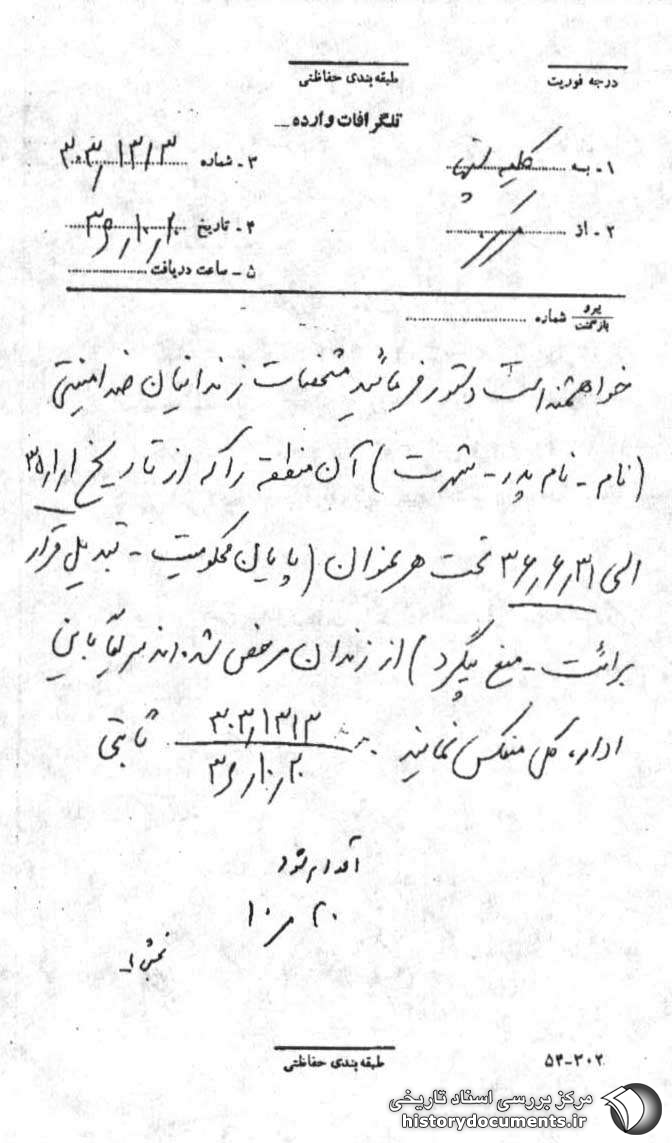 طبقه‌بندی حفاظتی
درجه فوریت
تلگرافات وارده
۱ - به کلیه
۳ - شماره ۳۰۳/۱۳۱۳
۲ - از مرکز
۴ - تاریخ ۳۶/۱۰/۲۰
۵ - ساعت دریافت
پیرو
بازگشت شماره
خواهشمند است دستور فرمائید مشخصات زندانیان ضد امنیتی
(نام - نام پدر - شهرت) آن منطقه را که از تاریخ ۳۵/۱/۱
الی ۳۶/۶/۳۱ تحت هر عنوان (پایان محکومیت - تبدیل قرار
برائت - منع پیگرد) از زندان مرخص شده‌اند سریعاً باین
اداره کل منعکس نمایند ۳۰۳/۱۳۱۳ ثابتی
۳۶/۱۰/۲۰
اقدام شود
۲۰ ر ۱۰
بخش ۱
طبقه‌بندی حفاظتی
۵۴-۳۰۲
مرکز بررسی اسناد تاریخی
historydocuments.ir